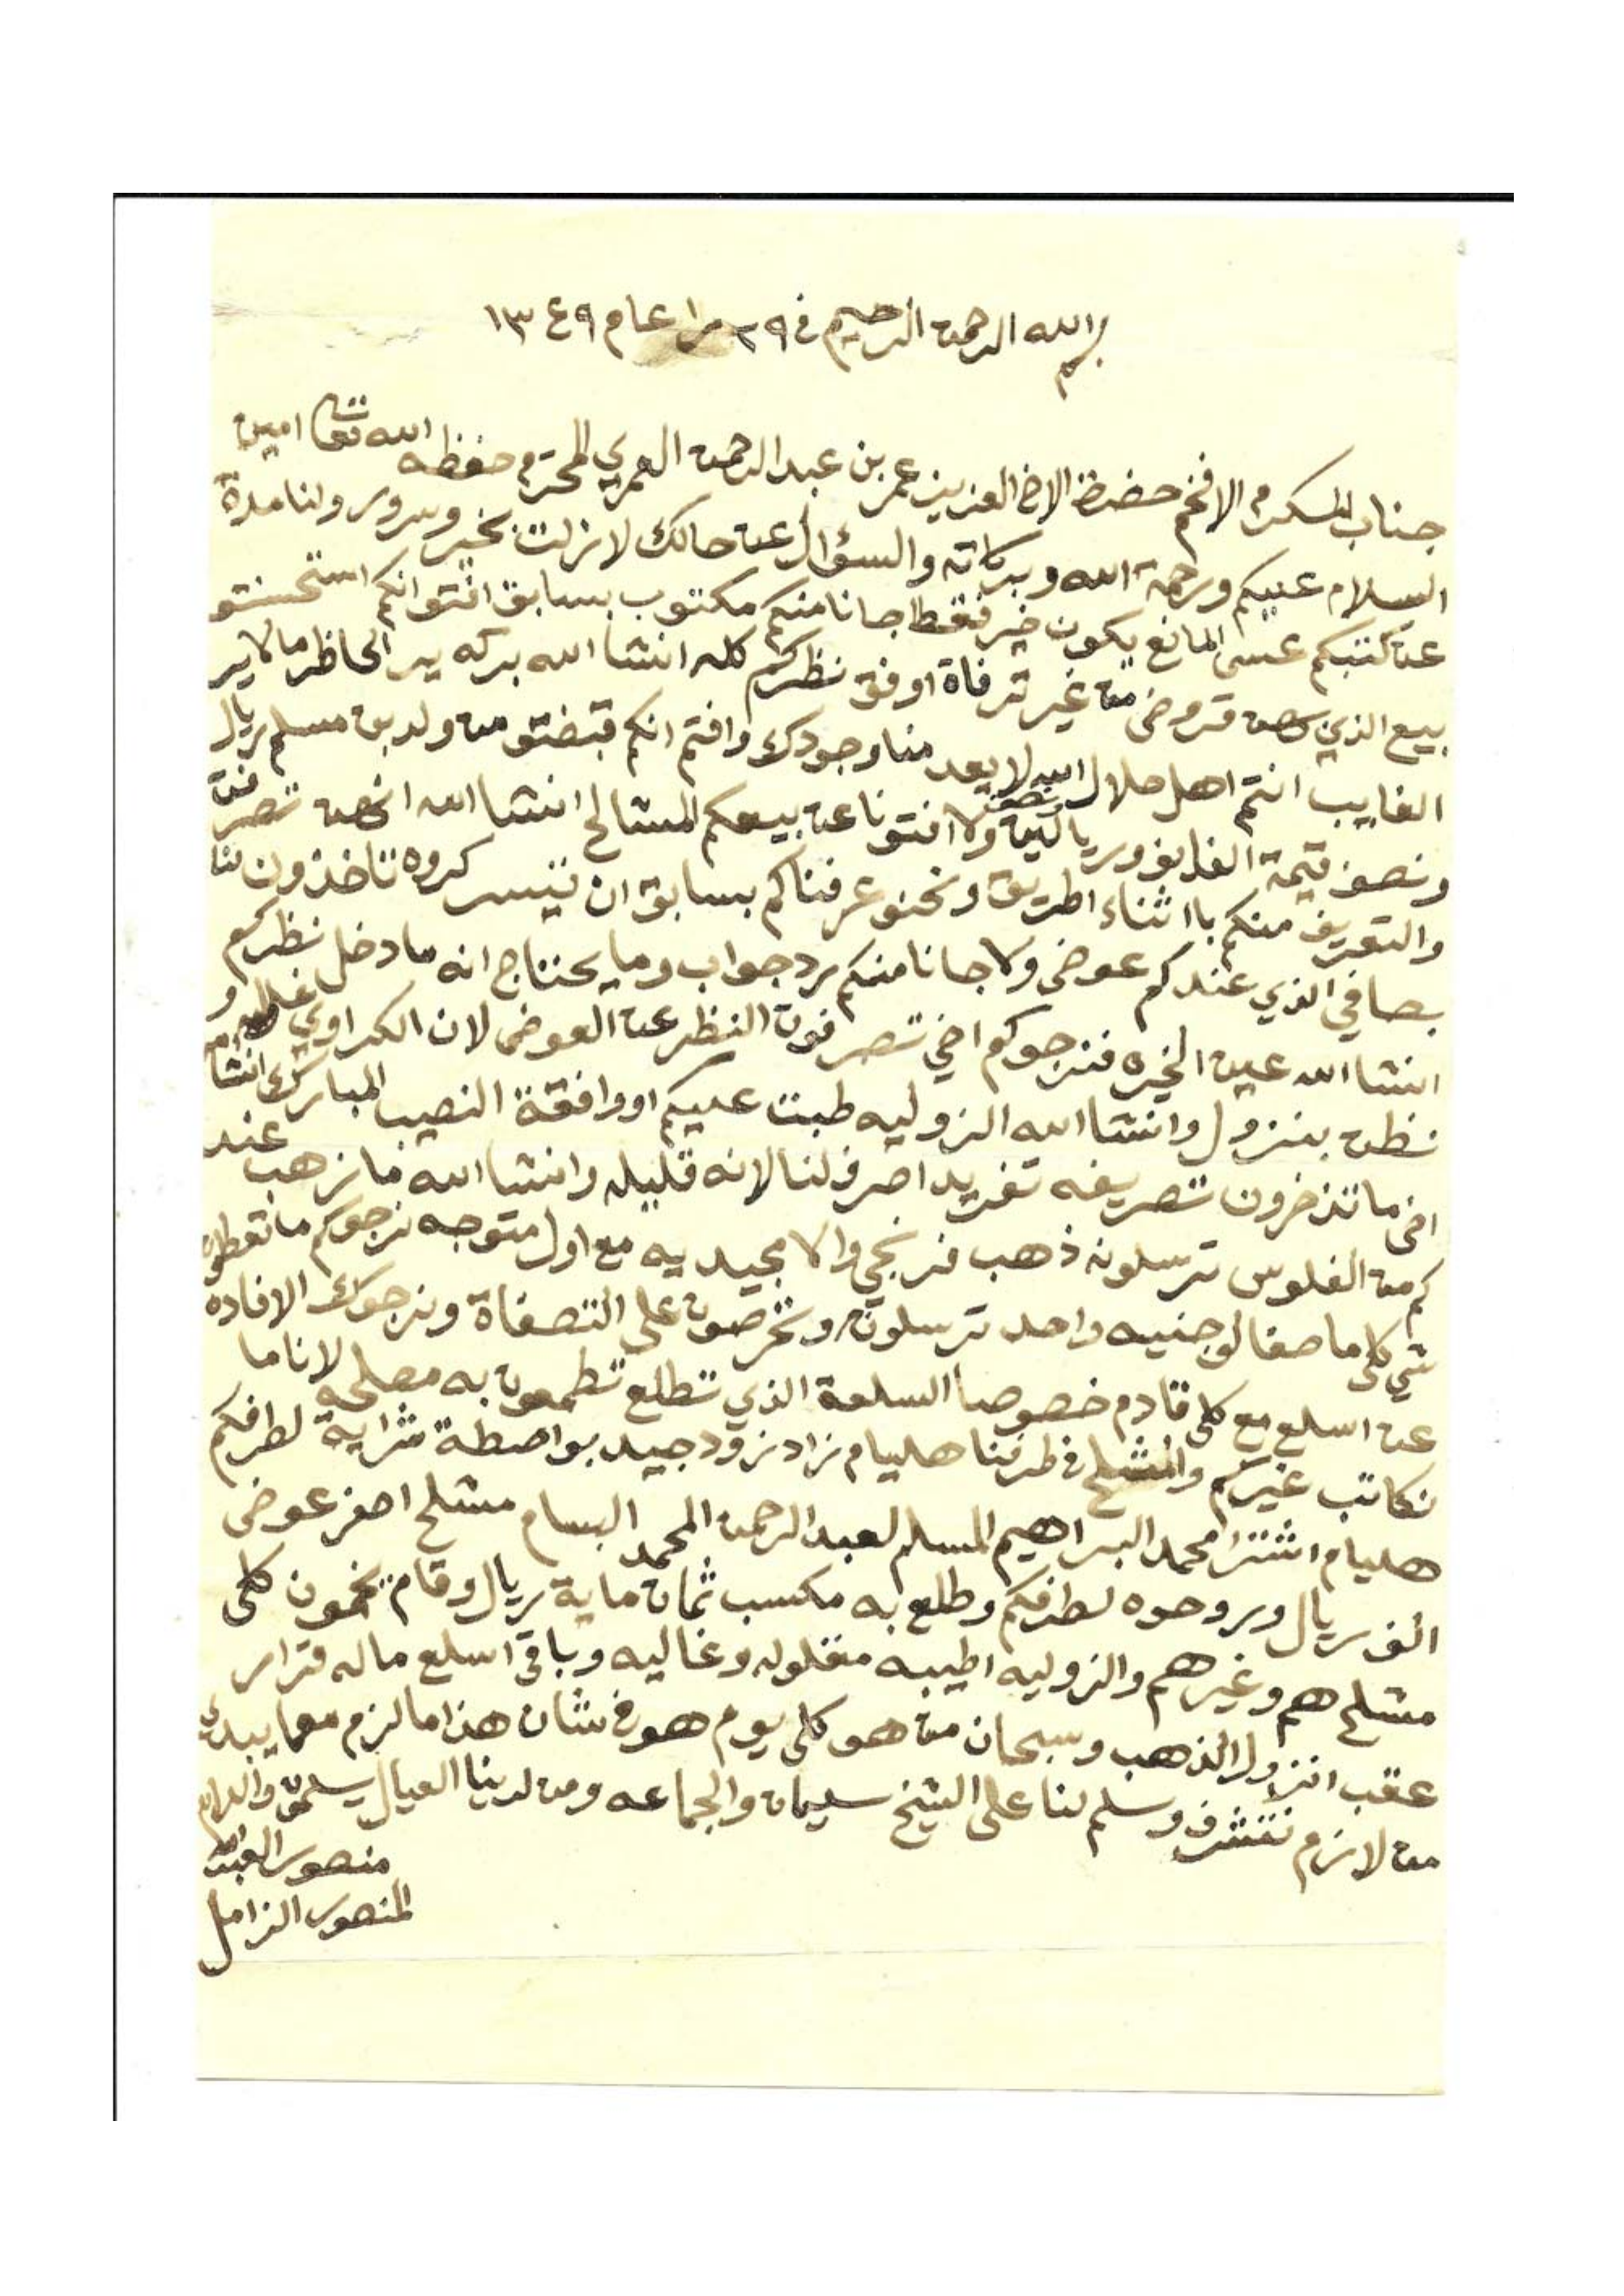 بسم الله الرحمن الرحيم في ٢٩ را عام ١٣٤٩
جناب المكرم الافخم حضرة الاخ العزيز عمر بن عبدالرحمن العمري المحترم حفظه الله تعالى امين
السلام عليكم ورحمة الله وبركاته والسؤال عن حالك لازلت بخير وسرور ولنا مدة
عن كتبكم عسى المانع يكون خير فقط جانا منكم مكتوب بسابق افتوا انكم استحسنتو
بيع الذي قروض من غير ترفاة اوفق نظركم كله انشا الله بركه يرا الحاظر مالا يرا
الغايب انتم اهل حلال الله لا يعد منا وجودك وافتم انكم قبضتو من ولد بن مسلم ريال
ونصف قيمة الغلايف وريالين ونصف ولا افتونا عن بيعكم المشالح انشا الله انهن تصرفن
والتعريف منكم باثناء اطريق ونحنو عرفناكم بسابق ان تيسر كروه تاخذون لنا
بصافي الذي عندكم عوض ولا جانا منكم رد جواب وما يحتاج انه ما دخل نظركم
انشا الله عين الخيره فنرجوكم اخي تصرفون النظر عن العوض لان الكراوي غاليه و
نظن بنزول وانشا الله الزوليه طبت عليكم او وافقة النصيب المبارك انشا
اخي ما تذخرون تصريفه تفريد اصرف لنا لانه قليله وانشا الله ما نرهب عند
كم من الفلوس ترسلونه ذهب فرنجي والا مجيديه مع اول متوجه نرجوكم ما تعطلون
شي كل ما صفا لو جنيه واحد ترسلونه وتحرصون على التصفاة ونرجوك الافاده
عن اسلع مع كل قادم خصوصا السلعة الذي تطلع تطمعون به مصلحه لانا ما
نكاتب غيركم والمشلح في طرفنا هليام زاد زود جيد بواصطة شراية لطرفكم
هليام اشترا محمد البراهيم المسلم لعبدالرحمن المحمد البسام مشلح اصفر عوض
الف ريال وروحوه لطرفكم وطلع به مكسب ثمان ماية ريال وقام يخمون كل
مشلح هم وغيرهم والزوليه اطيبه منقوله وغاليه وباقي اسلع ماله قرار
عقب انزول الذهب وسبحان من هو كل يوم هو في شان هذا ما لزم معما يبدي
من لازم نتشرف وسلم لنا على الشيخ سليمان والجماعه ومن لدينا العيال يسلمون والسلام
منصور العبدالله
المنصور الزامل